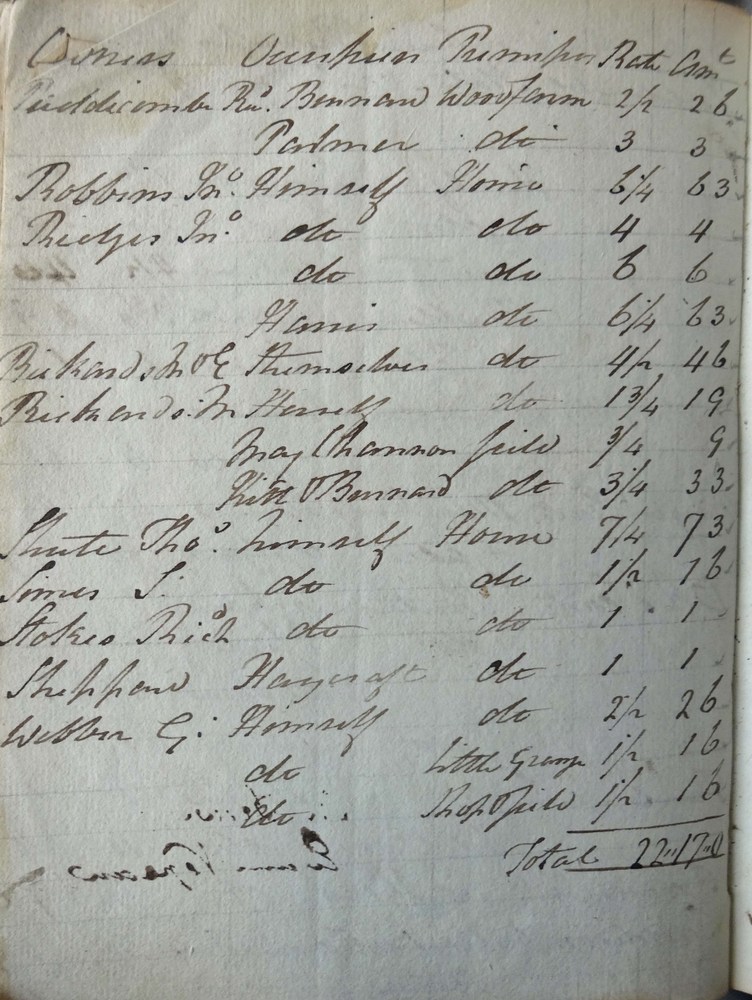 Owners Occupiers Premises Rate Amt
Puddicombe Rd. Bennard Woodfarm 2/2 2 6
Palmer do 3 3
Robbins Jno. Himself House 6 1/4 6 3
Ridges Jno. do do 4 4
do do 6 6
Harris do 6 1/4 6 3
Rickards M & E Themselves do 4/2 4 6
Rickards. M Herself do 1 3/4 1 9
May Channon field 3/4 9
Kitt & Bennard do 3/4 3 3
Shute Thos. himself House 7/4 7 3
Simes S. do do 1/2 1 6
Stokes Richd do do 1 1
Sheppard Haycraft do 1 1
Webber G. Himself do 2/2 2 6
do Little Grange 1/2 1 6
do Shop & field 1/2 1 6
Total 22"17"0